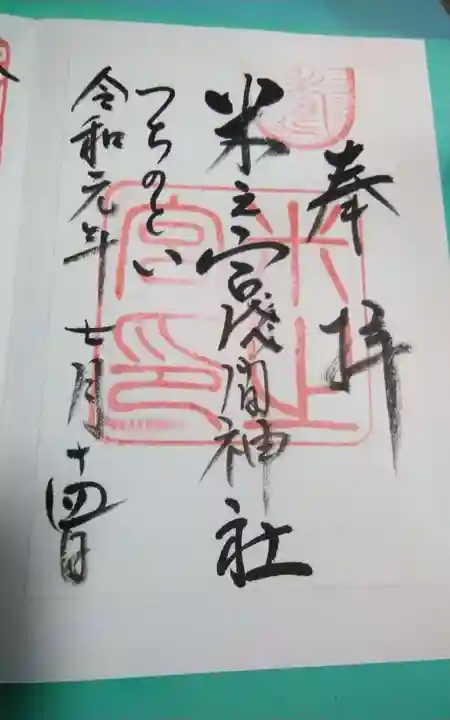 奉拝
米之宮浅間神社
つちのとい
令和元年七月十四日
米之宮印